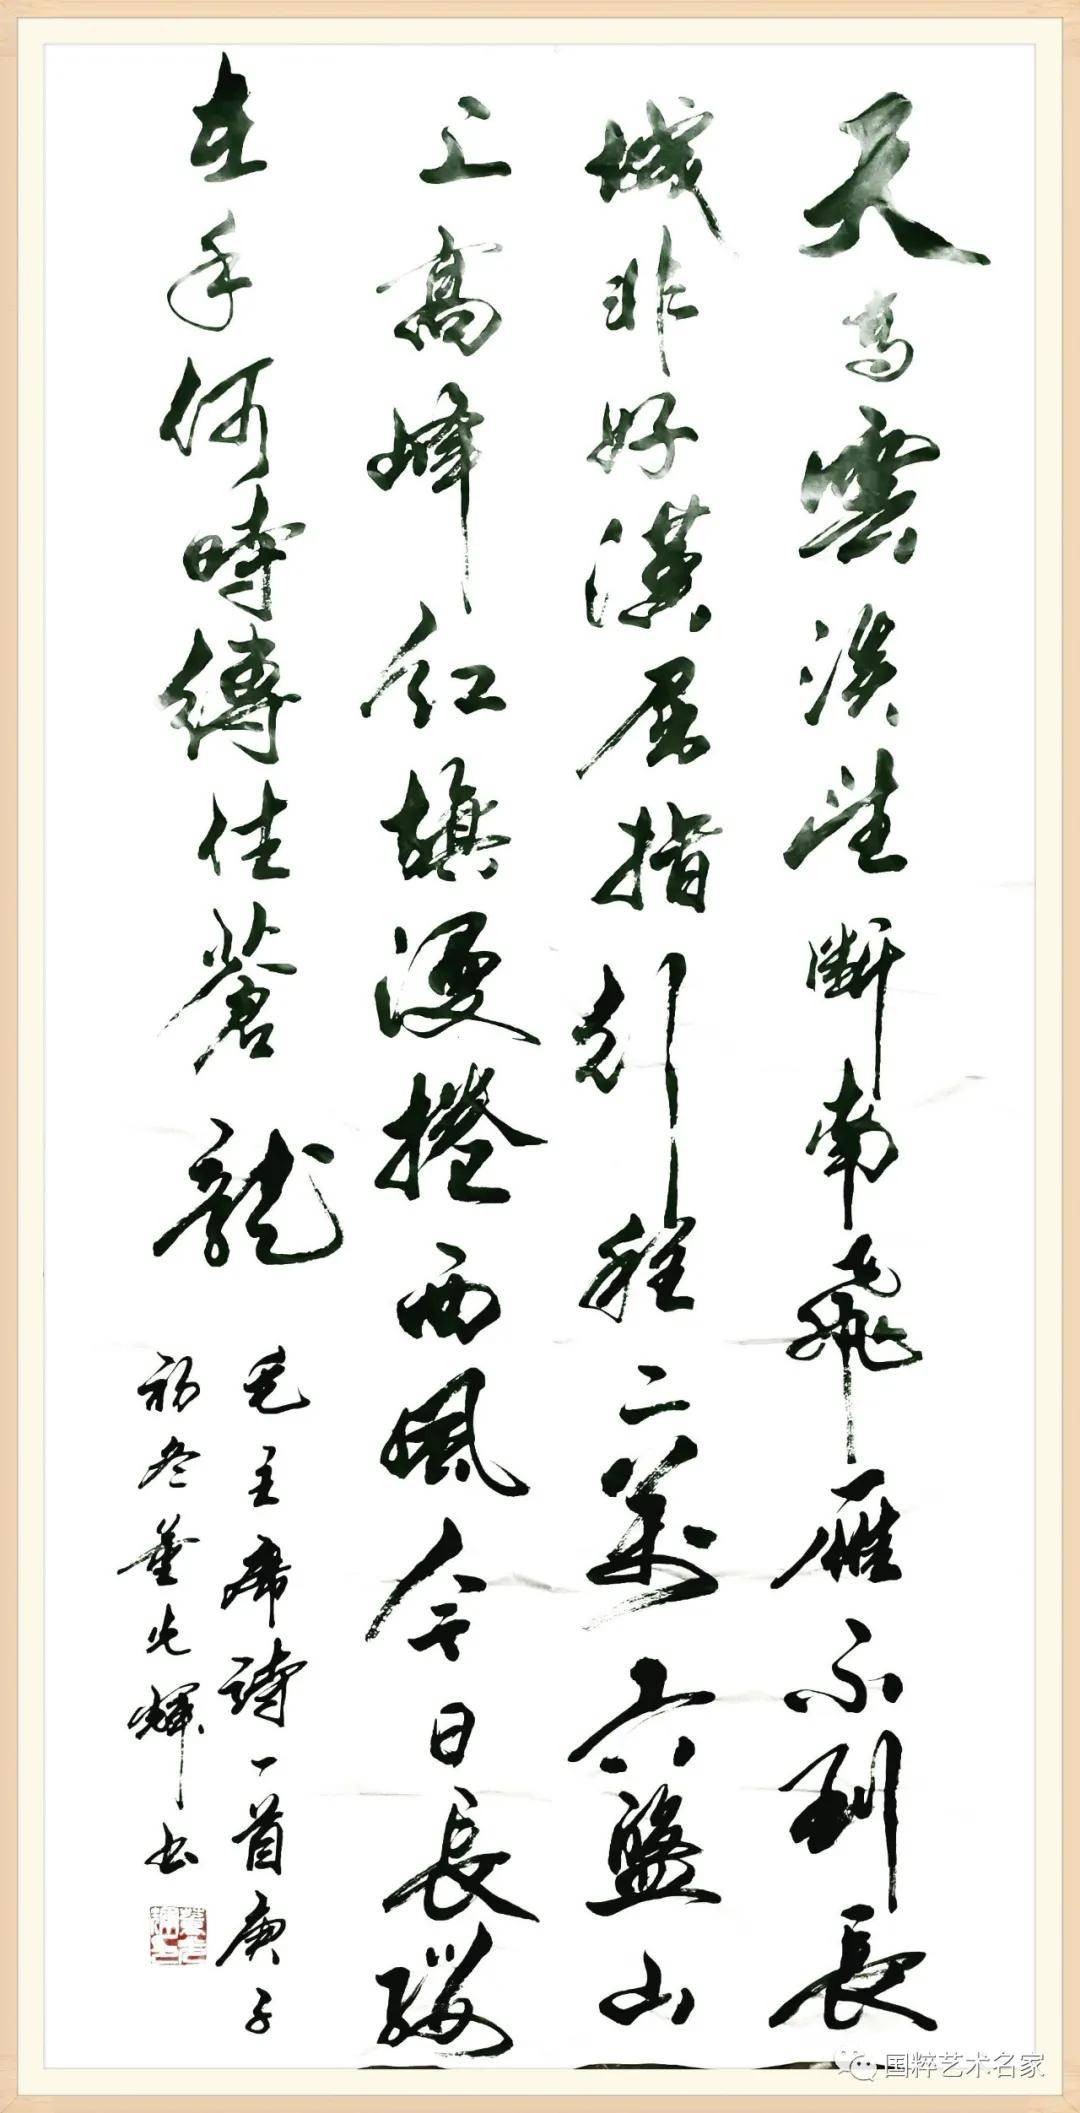 天高雲淡望斷南飛雁不到長
城非好漢屈指行程二萬六盤山
上高峰紅旗漫捲西風今日長纓
在手何時縛住蒼龍
毛主席詩一首庚子
初冬董光輝书
国粹艺术名家